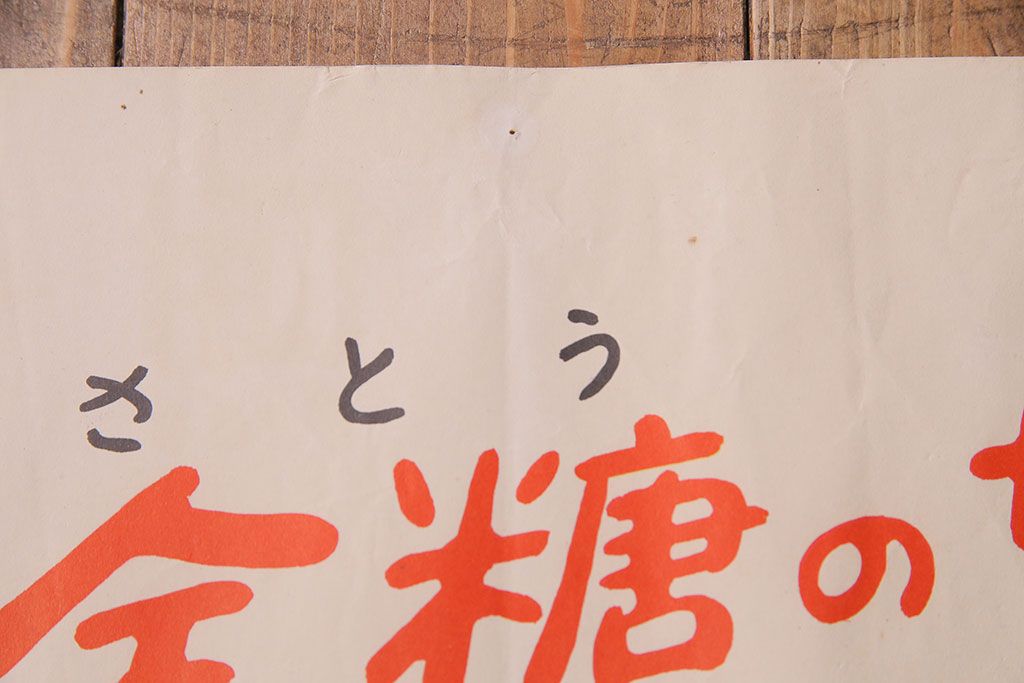 さとう
糖の